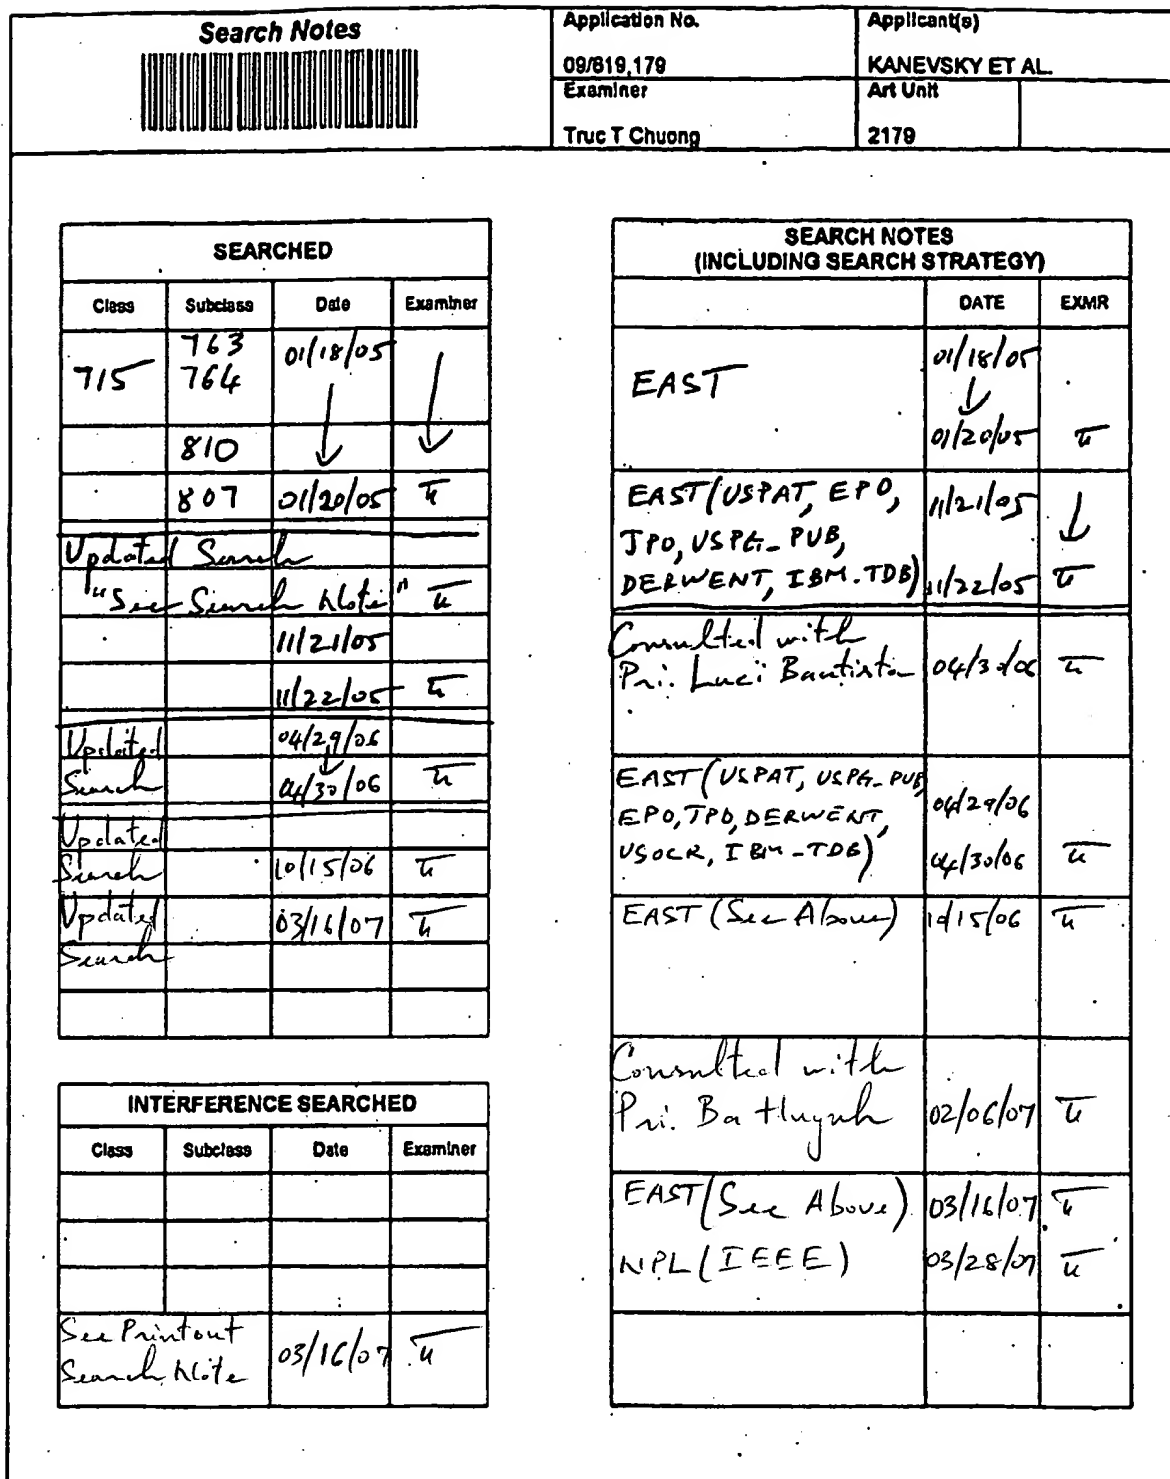 Search Notes
Application No.
09/819,179
Applicant(s)
KANEVSKY ET AL.
Examiner
Truc T Chuong
Art Unit
2179
SEARCHED
Class Subclass Date Examiner
715 763 01/18/05
764
810
807 01/20/05
Updated Search
"See Search Note"
11/21/05
11/22/05
Updated 04/29/06
Search 04/30/06
Updated
Search 10/15/06
Updated 03/16/07
Search
INTERFERENCE SEARCHED
Class Subclass Date Examiner
See Printout
Search Note 03/16/07
SEARCH NOTES
(INCLUDING SEARCH STRATEGY)
DATE EXMR
EAST 01/18/05
01/20/05
EAST (USPAT, EPO, 11/21/05
JPO, USPG_PUB,
DERWENT, IBM-TDB) 11/22/05
Consulted with
Pri. Luci Bautista 04/30/06
EAST (USPAT, USPG_PUB,
EPO, JPO, DERWENT, 04/29/06
USOCR, IBM-TDB) 04/30/06
EAST (See Above) 10/15/06
Consulted with
Pri. Ba Huynh 02/06/07
EAST (See Above) 03/16/07
NPL (IEEE) 03/28/07